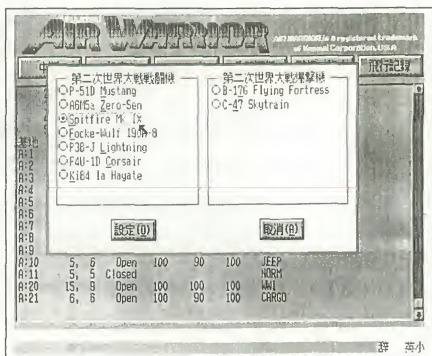 AIR WARRIOR
AIR WARRIOR is a registered trademark
of Kesmai Corporation, U.S.A
飛行記録
第二次世界大戦戦闘機
P-51D Mustang
A6M5a Zero-Sen
Spitfire Mk IX
Focke-Wulf 190A-8
P38-J Lightning
F4U-1D Corsair
Ki84 Ia Hayate
第二次世界大戦爆撃機
B-17G Flying Fortress
C-47 Skytrain
設定(O)
取消(A)
基地
A:1
A:2
A:3
A:4
A:5
A:6
A:7
A:8
A:9
A:10 5, 6 Open 100 90 100 JEEP
A:11 5, 5 Closed NORM
A:20 15, 9 Open 100 100 100 WWI
A:21 6, 6 Open 100 90 100 CARGO
辞 英小